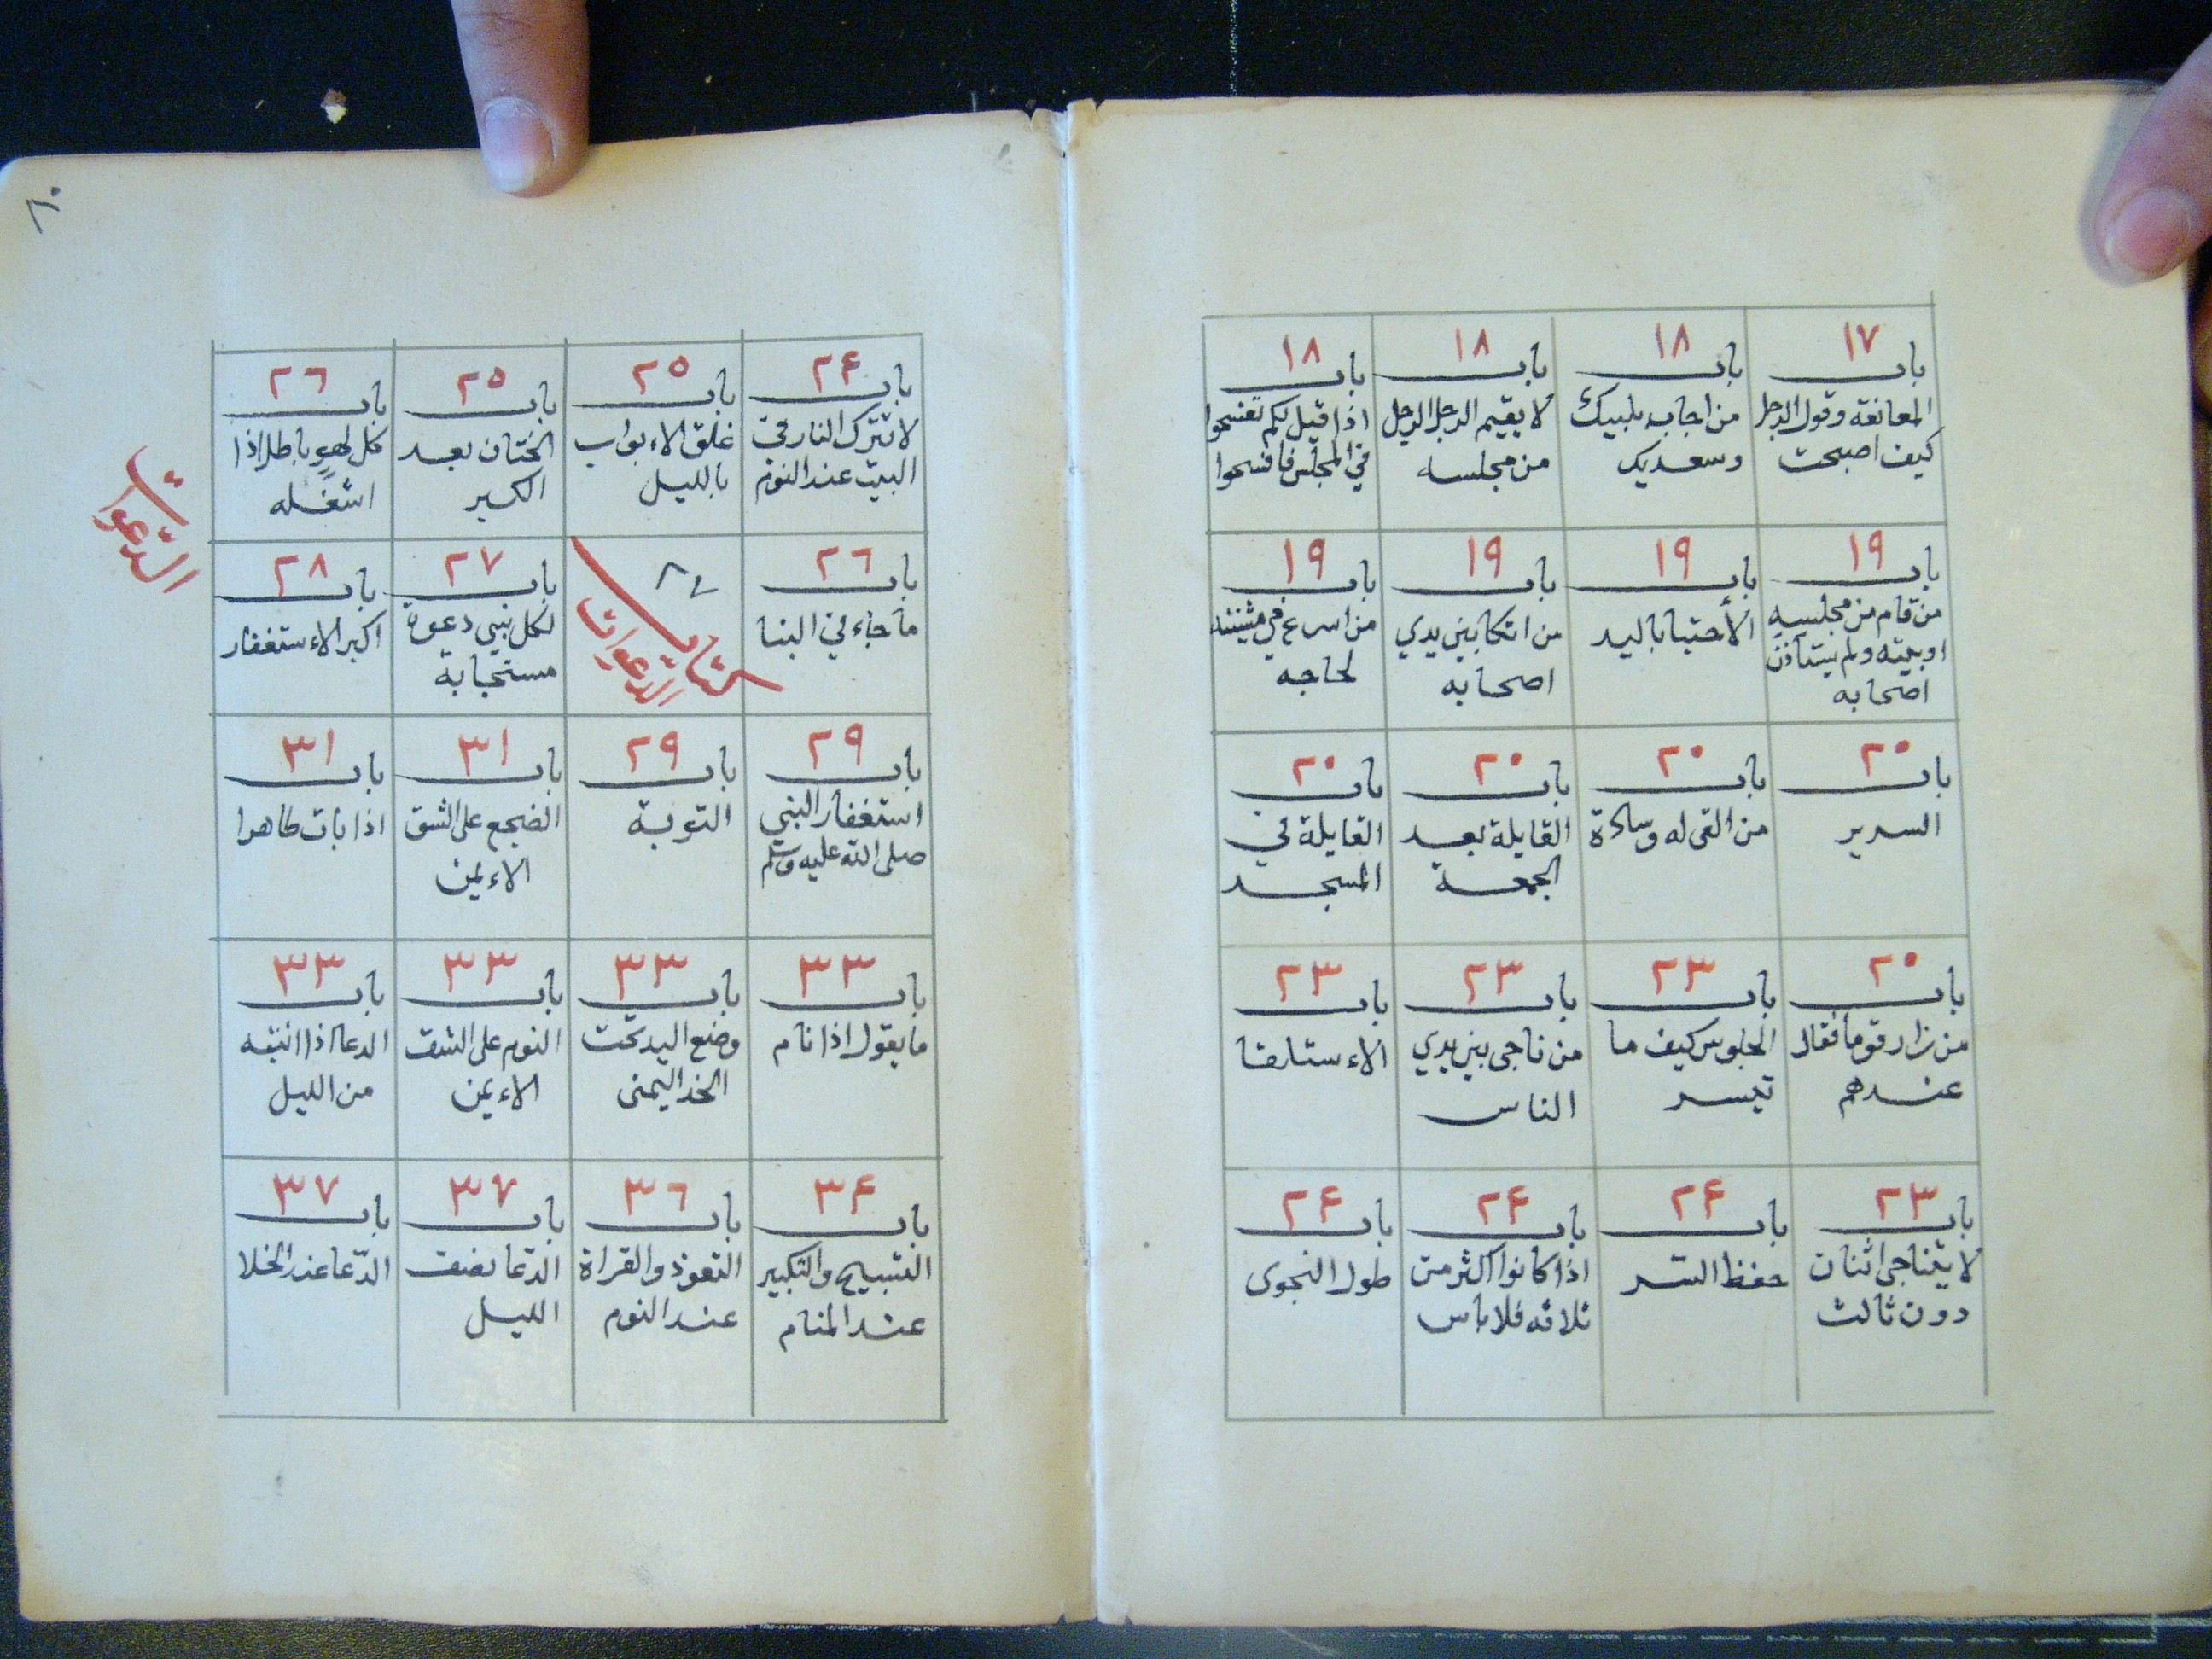 ١٧
باب
المعانقة وقول الرجل
كيف اصبحت
١٨
باب
من اجاب بلبيك
وسعديك
١٨
باب
لا يقيم الرجل الرجل
من مجلسه
١٨
باب
اذا قيل لكم تفسحوا
في المجلس فافسحوا
١٩
باب
من قام من مجلسه
او بيته ولم يستأذن
اصحابه
١٩
باب
الأحتبا باليد
١٩
باب
من اتكا بين يدي
اصحابه
١٩
باب
من اسرع في مشيته
لحاجه
٢٠
باب
السرير
٢٠
باب
من القى له وسادة
٢٠
باب
القايلة بعد
الجمعة
٢٠
باب
القايلة في
المسجد
٢٠
باب
من زار قوما فقال
عندهم
٢٣
باب
الجلوس كيف ما
تيسر
٢٣
باب
من ناجى بين يدي
الناس
٢٣
باب
الاءستلقا
٢٣
باب
لا يتناجى اثنان
دون ثالث
٢۴
باب
حفظ السّر
٢۴
باب
اذا كانوا اكثر من
ثلاثه فلا باس
٢۴
باب
طول النجوى
٢۴
باب
لا تترك النار في
البيت عند النوم
٢٥
باب
غلق الاءبواب
بالليل
٢٥
باب
الختان بعد
الكبر
٢٦
باب
كل لهوٍ باطل اذا
اشغله
٢٦
باب
ما جاء في البنا
كتاب
الدّعوات
٢٧
باب
لكل نبي دعوة
مستجابة
٢٨
باب
اكبر الاءستغفار
الدّعوات
٢٩
باب
استغفار النبي
صلى الله عليه وسلم
٢٩
باب
التوبة
٣١
باب
الضجع على الشق
الاءيمن
٣١
باب
اذا بات طاهرا
٣٣
باب
ما يقول اذا نام
٣٣
باب
وضع اليد تحت
الخد اليمنى
٣٣
باب
النوم على الشق
الاءيمن
٣٣
باب
الدعا اذا انتبه
من الليل
٣۴
باب
التسبيح والتكبير
عند المنام
٣٦
باب
التعوذ والقراة
عند النوم
٣٧
باب
الدّعا نصف
الليل
٣٧
باب
الدّعا عند الخلا